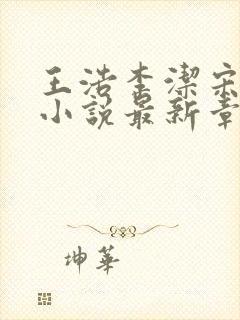 王浩李潔宋
小說最新章
坤華